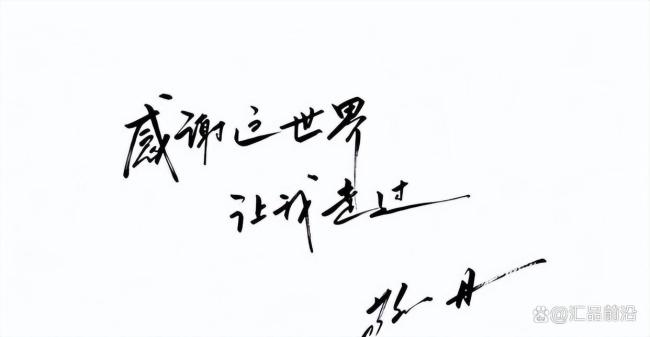 感谢这世界
让我走过
丹
@汇品前沿